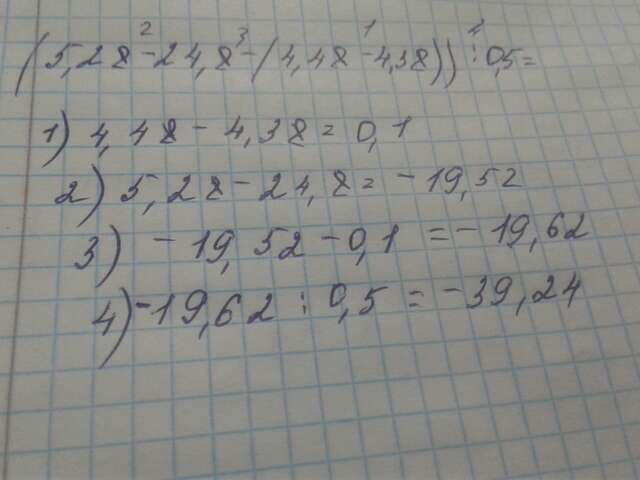 (5,28 - 24,8 - (4,48 - 4,38)) : 0,5 =
1) 4,48 - 4,38 = 0,1
2) 5,28 - 24,8 = -19,52
3) -19,52 - 0,1 = -19,62
4) -19,62 : 0,5 = -39,24